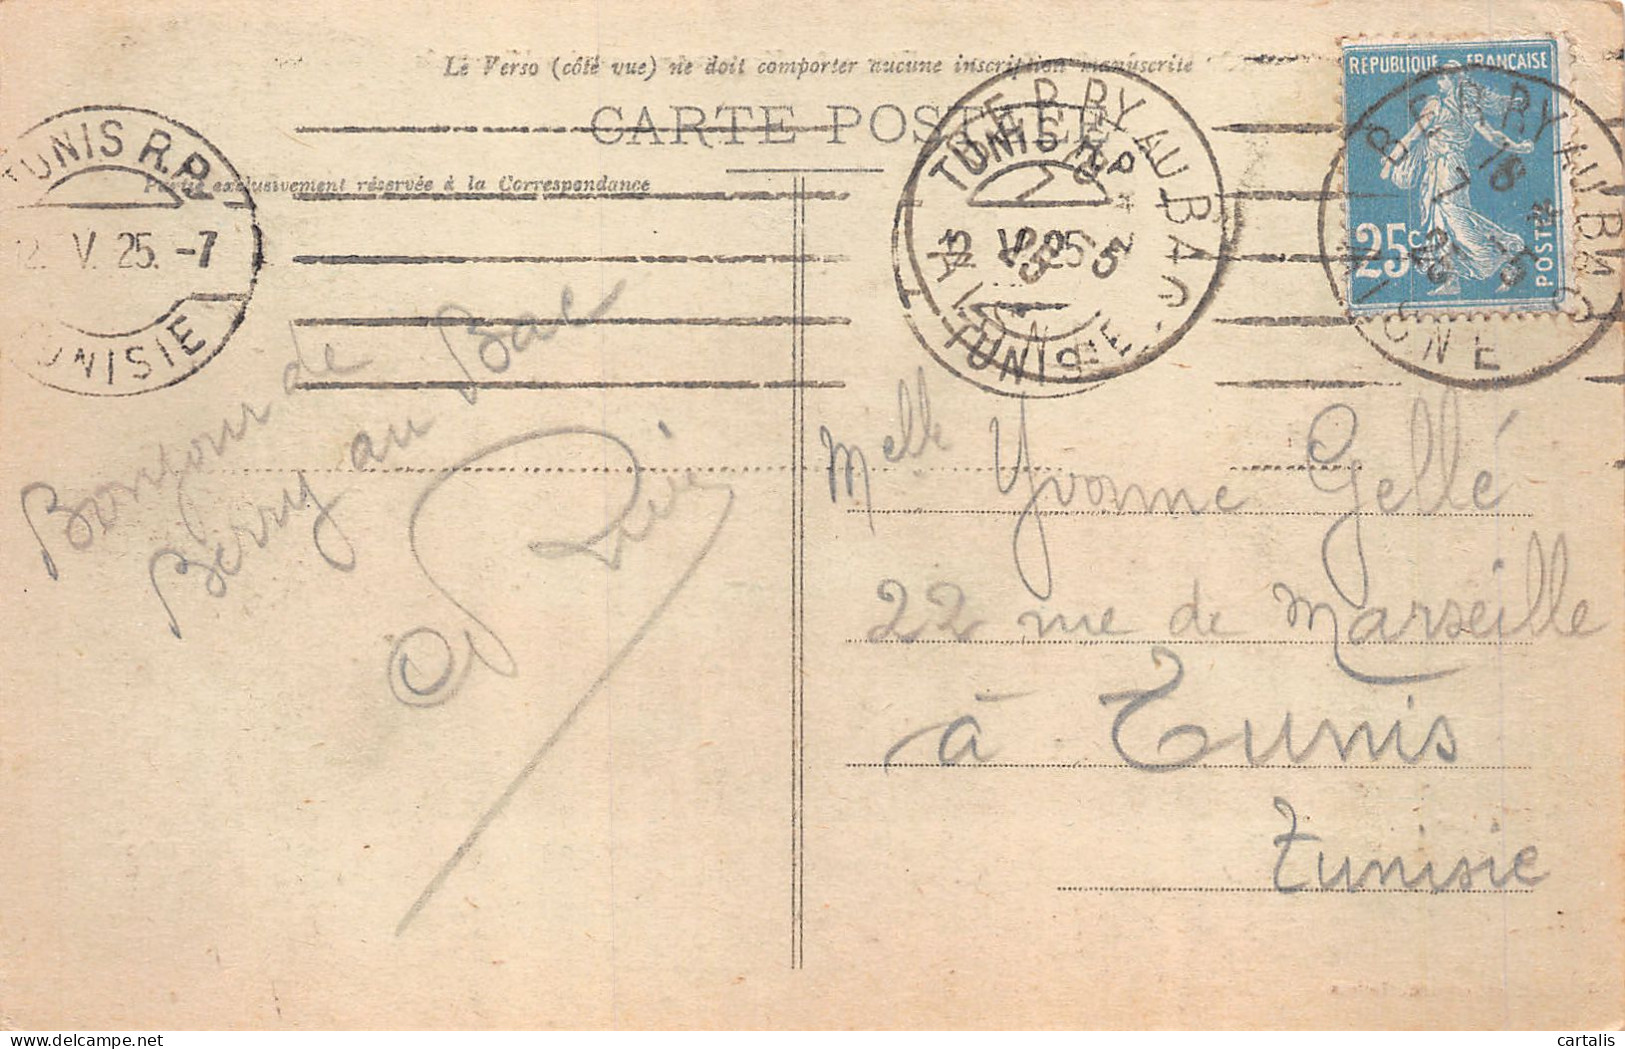 Le Verso (côté vue) ne doit comporter aucune inscription manuscrite
CARTE POSTALE
Partie exclusivement réservée à la Correspondance
TUNIS R.P.
12. V. 25. -7
TUNISIE
TUNIS R.P.
12 V 25
TUNISIE
BERRY AU BAC
AISNE
REPUBLIQUE FRANÇAISE
25c
POSTES
BERRY AU BAC
18
7 -5
25
AISNE
Bonjour de
Berry au Bac
Melle Yvonne Gellé
22 rue de Marseille
à Tunis
Tunisie
cartalis
DELCAMPE.NET